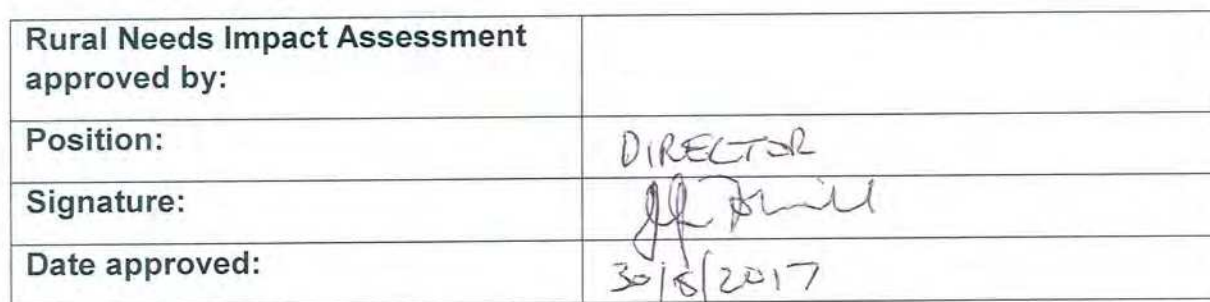 Rural Needs Impact Assessment
approved by:
Position:
DIRECTOR
Signature:
Date approved:
30/8/2017